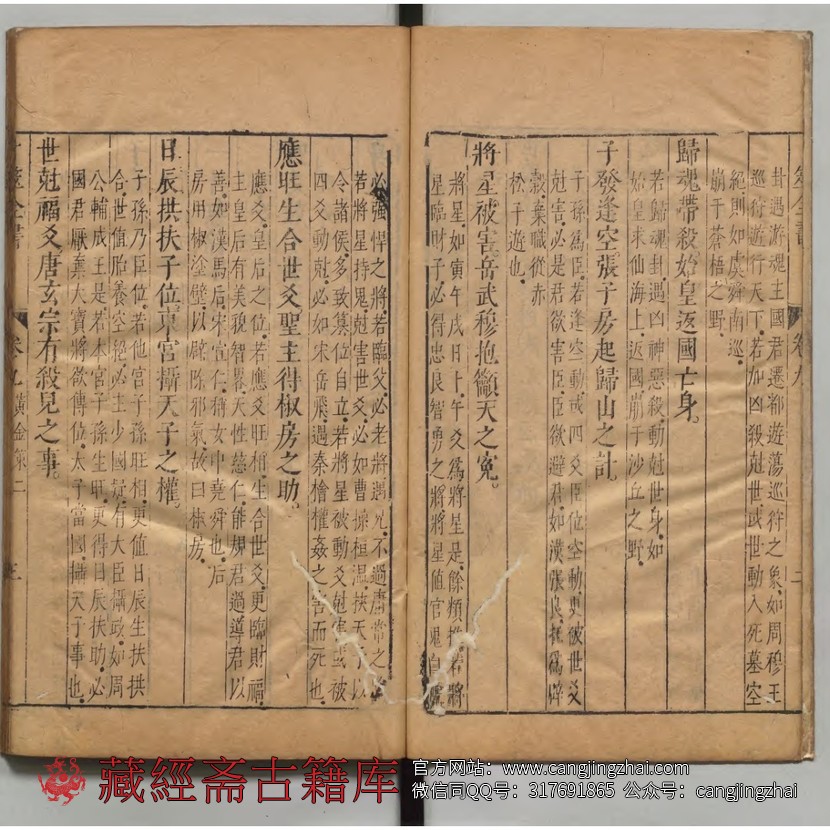 卦遇游魂主國君遷都遊蕩巡狩之象如周穆王
巡狩遊行天下若加凶殺尅世或世動入死墓空
絕則如虞舜南巡
崩于蒼梧之野
歸魂帶殺始皇返國亡身
若歸魂卦遇凶神惡殺動尅世身如
始皇求仙海上返國崩于沙丘之野
子發逢空張子房起歸山之計
子孫為臣若逢空動或四爻臣位空動更被世爻
尅害必是君欲害臣臣欲避君如漢張良托為辟
穀棄職從赤
松子遊也
將星被害岳武穆抱籲天之寃
將星如寅午戌日卜午爻為將星是餘類推若將
星臨財子必得忠良智勇之將將星值官鬼自
必強悍之將若臨父必老將遇兄不過庸常之
若將星持鬼尅害世爻必如曹操桓溫挾天子以
令諸侯多致簒位自立若將星被動爻尅害或被
四爻動尅必如宋岳飛遇秦檜權姦之害而死也
應旺生合世爻聖主得椒房之助
應爻皇后之位若應爻旺相生合世爻更臨財福
主皇后有美貌智畧大性慈仁能規君過導君以
善如漢馬后宋宣仁稱女中堯舜也后
房用椒塗壁以辟除邪氣故曰椒房
日辰拱扶子位東宮攝天子之權
子孫乃臣位若他宮子孫旺相更值日辰生扶拱
合世值胎養空絕必主少國疑有大臣攝政如周
公輔成王是若本宮子孫生旺更得日辰扶助必
國君厭棄大寶將欲傳位太子當國攝天子事也
世尅福爻唐玄宗有殺兒之事
卜筮全書
卷九
黃金策二
三
藏經斋古籍库
官方网站：www.cangjingzhai.com
微信同QQ号：317691865 公众号：cangjingzhai